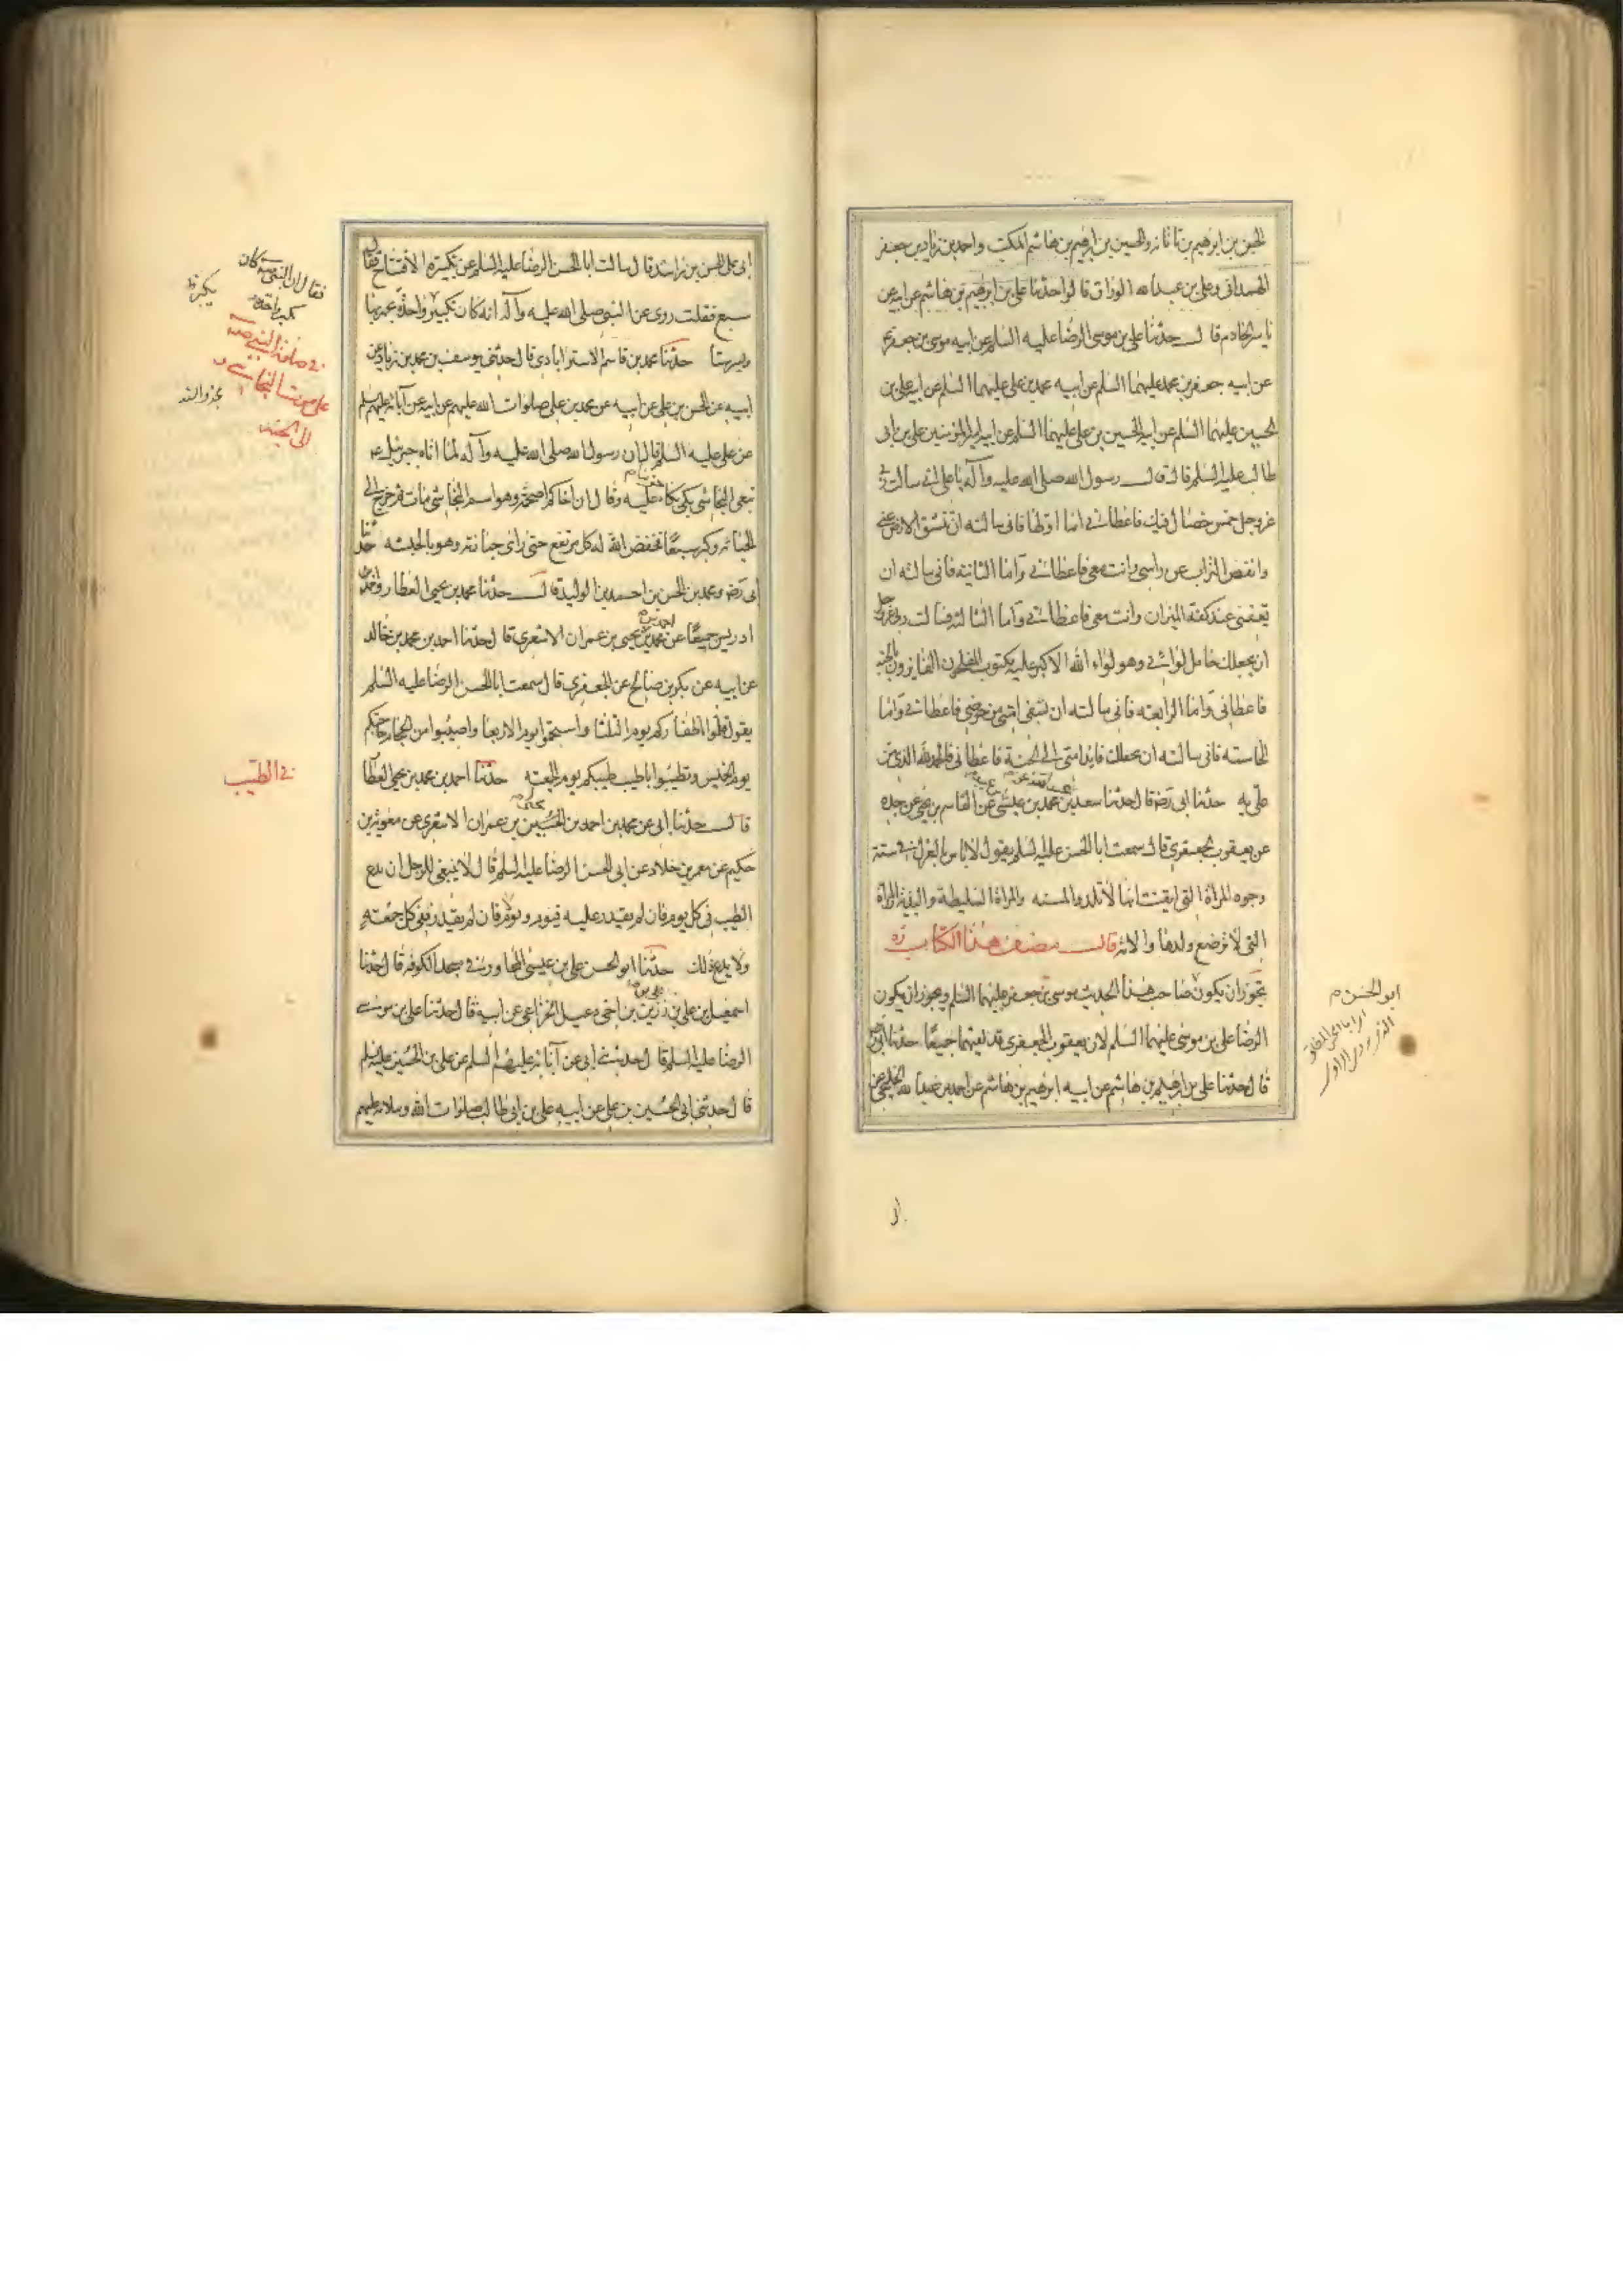 الحسين بن ابرهيم بن تاتانه والحسين بن ابرهيم بن هاشم المكتب واحمد بن زياد بن جعفر
الهمداني وعلي بن عبد الله الوراق قالوا حدثنا علي بن ابرهيم بن هاشم عن ابيه عن
ياسر الخادم قال حدثنا علي بن موسى الرضا عليه السلم عن ابيه موسى بن جعفر
عن ابيه جعفر بن محمد عليهما السلم عن ابيه محمد بن علي عليهما السلم عن ابيه علي بن
الحسين عليهما السلم عن ابيه الحسين بن علي عليهما السلم عن ابيه امير المؤمنين علي بن ابى
طالب عليه السلم قال قال رسول الله صلى الله عليه وآله يا علي اني سالت ربي
عز وجل خمس خصال فيك فاعطاني اما اولها فاني سالته ان تنشق الارض عني
وانفض التراب عن راسي وانت معي فاعطاني واما الثانية فاني سالته ان
يقفني عند كفة الميزان وانت معي فاعطاني واما الثالثة فسالت ربي عز وجل
ان يجعلك حامل لوائي وهو لواء الله الاكبر عليه مكتوب المفلحون الفايزون بالجنة
فاعطاني واما الرابعة فاني سالته ان تسقي امتي من حوضي فاعطاني واما
الخامسة فاني سالته ان يجعلك قايد امتي الى الجنة فاعطاني فالحمد لله الذي من
علي به حدثنا ابي رضه قال حدثنا سعد بن عبد الله عن محمد بن عيسى عن القاسم بن يحيى عن جده
عن يعقوب الجعفري قال سمعت ابا الحسن عليه السلم يقول لا باس بالعزل في ستة
وجوه المراة التي ايقنت انها لا تلد والمسنة والمراة السليطة والبذية والمراة
التي لا ترضع ولدها والامة قال مصنف هذا الكتاب ره
يجوز ان يكون صاحب هذا الحديث موسى بن جعفر عليهما السلم ويجوز ان يكون
الرضا علي بن موسى عليهما السلم لان يعقوب الجعفري قد لقيهما جميعا حدثنا ابي رضه
قال حدثنا علي بن ابرهيم بن هاشم عن ابيه ابرهيم بن هاشم عن احمد بن عبد الله الخلنجي عن
ابو الحسن م
ابى علي الحسن بن راشد قال سالت ابا الحسن الرضا عليه السلم عن تكبيرة الافتتاح فقال
سبع فقلت روى عن النبي صلى الله عليه وآله انه كان يكبر واحدة يجهر بها
ويسر ستا حدثنا محمد بن قاسم الاسترابادي قال حدثني يوسف بن محمد بن زياد عن
ابيه عن الحسن بن علي عن ابيه عن محمد بن علي صلوات الله عليهم عن ابيه عن آبائه عليهم السلم
عن علي عليه السلم قال ان رسول الله صلى الله عليه وآله لما اتاه جبرئيل ع
بنعي النجاشي بكى بكاء حزين عليه وقال ان اخاكم اصحمة وهو اسم النجاشي مات ثم خرج الى
الجبانة وكبر سبعا فخفض الله له كل مرتفع حتى راى جنازته وهو بالحبشة حدثنا
ابى رضه ومحمد بن الحسن بن احمد بن الوليد قال حدثنا محمد بن يحيى العطار واحمد بن
ادريس جميعا عن محمد بن احمد بن يحيى بن عمران الاشعري قال حدثنا احمد بن محمد بن خالد
عن ابيه عن بكر بن صالح عن الجعفري قال سمعت ابا الحسن الرضا عليه السلم
يقول قلموا اظفاركم يوم الثلثا واستحموا يوم الاربعا واصيبوا من الحجام حاجتكم
يوم الخميس وتطيبوا باطيب طيبكم يوم الجمعة حدثنا احمد بن محمد بن يحيى العطا
قال حدثنا ابي عن محمد بن احمد بن يحيى بن عمران الاشعري عن معوية بن
حكيم عن معمر بن خلاد عن ابي الحسن الرضا عليه السلم قال لا ينبغي للرجل ان يدع
الطيب في كل يوم فان لم يقدر عليه فيوم ويوم لا فان لم يقدر ففي كل جمعة
ولا يدع ذلك حدثنا ابو الحسن علي بن عيسى المجاور في مسجد الكوفة قال حدثنا
اسمعيل بن علي بن رزين بن اخي دعبل الخزاعي عن ابيه قال حدثنا علي بن موسى
الرضا عليه السلم قال حدثني ابي عن آبائه عليهم السلم عن علي بن الحسين عليه السلم
قال حدثني ابي الحسين بن علي عن ابيه علي بن ابي طالب صلوات الله وسلامه عليهم
فقال ان النبي ص كان
يكبر واحدة
في صلوة النبي ص
على ميت النجاشي
في الطيب